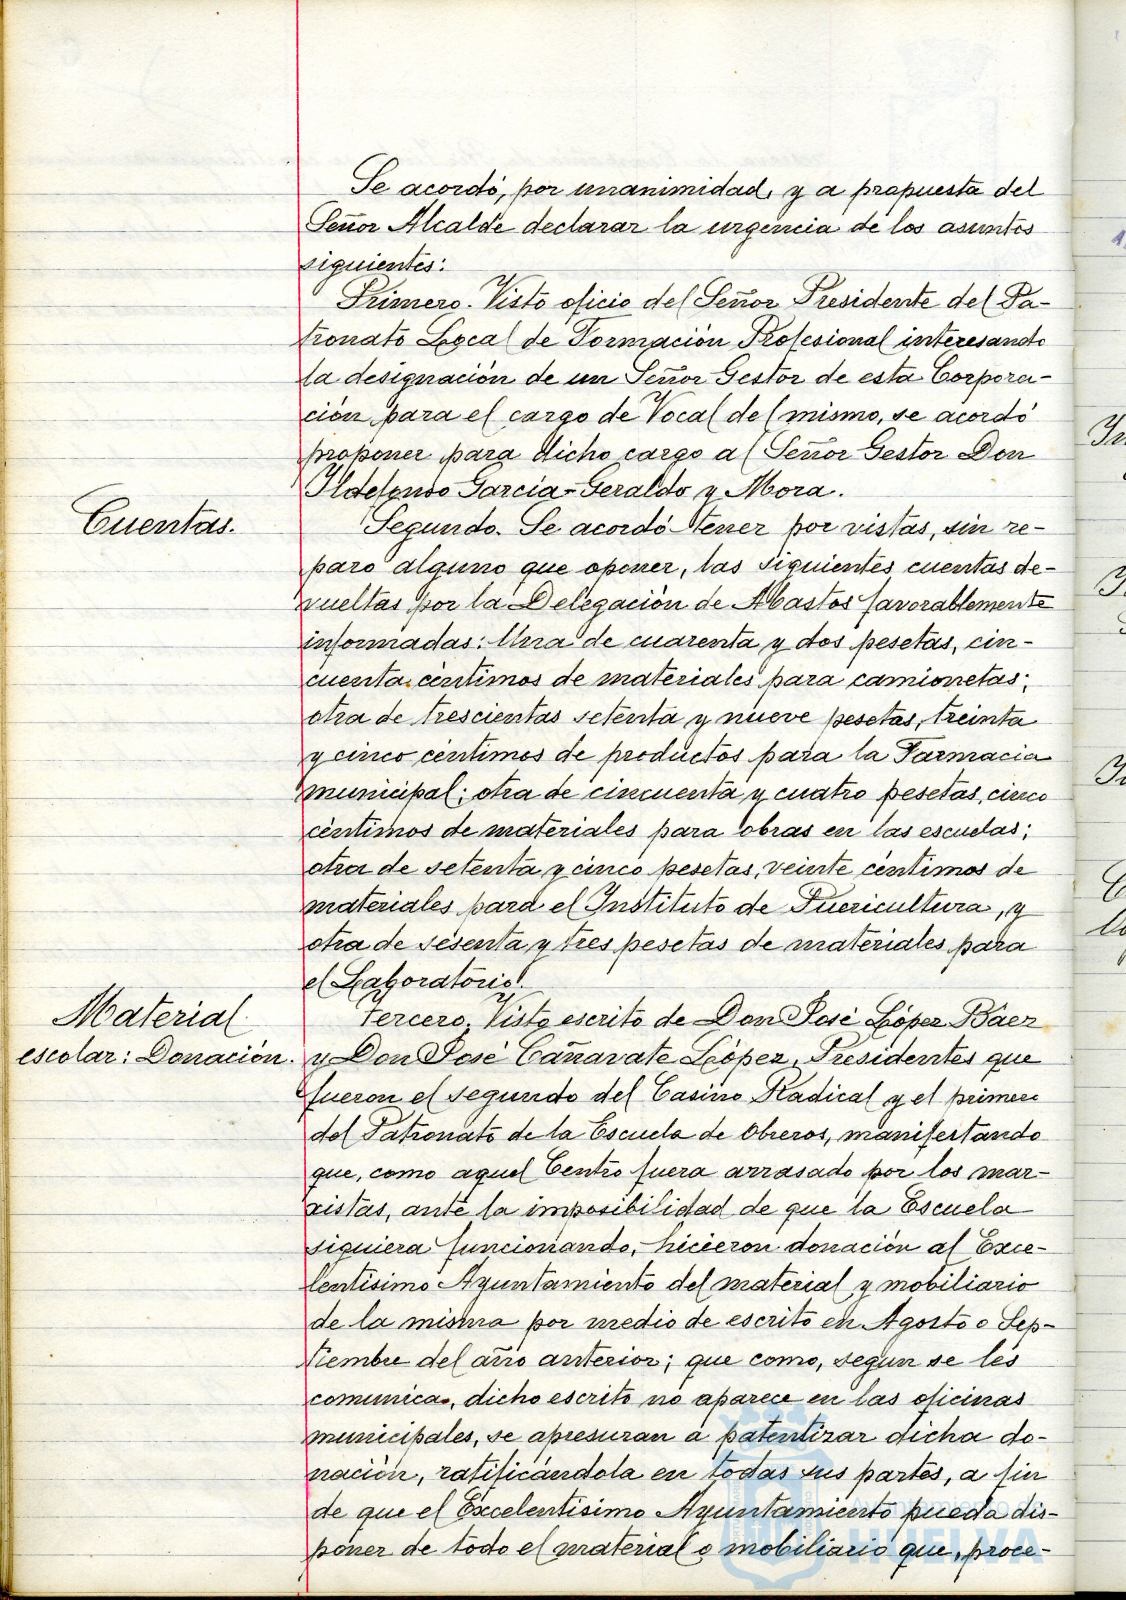 Se acordó, por unanimidad, y a propuesta del
Señor Alcalde declarar la urgencia de los asuntos
siguientes:
Primero. Visto oficio del Señor Presidente del Pa-
tronato Local de Formación Profesional interesando
la designación de un Señor Gestor de esta Corpora-
ción para el cargo de Vocal del mismo, se acordó
proponer para dicho cargo al Señor Gestor Don
Ildefonso García-Geraldo y Mora.
Cuentas.
Segundo. Se acordó tener por vistas, sin re-
paro alguno que oponer, las siguientes cuentas de-
vueltas por la Delegación de Abastos favorablemente
informadas: Una de cuarenta y dos pesetas, cin-
cuenta céntimos de materiales para camionetas;
otra de trescientas setenta y nueve pesetas, treinta
y cinco céntimos de productos para la Farmacia
municipal; otra de cincuenta y cuatro pesetas, cinco
céntimos de materiales para obras en las escuelas;
otra de setenta y cinco pesetas, veinte céntimos de
materiales para el Instituto de Puericultura, y
otra de sesenta y tres pesetas de materiales para
el Laboratorio.
Material
escolar: Donación.
Tercero. Visto escrito de Don José López Báez
y Don José Cañavate López, Presidentes que
fueron el segundo del Casino Radical y el primero
del Patronato de la Escuela de Obreros, manifestando
que, como aquel Centro fuera arrasado por los mar-
xistas, ante la imposibilidad de que la Escuela
siguiera funcionando, hicieron donación al Exce-
lentísimo Ayuntamiento del material y mobiliario
de la misma por medio de escrito en Agosto o Sep-
tiembre del año anterior; que como, segun se les
comunica, dicho escrito no aparece en las oficinas
municipales, se apresuran a patentizar dicha do-
nación, ratificándola en todas sus partes, a fin
de que el Excelentísimo Ayuntamiento pueda dis-
poner de todo el material o mobiliario que, proce-
HUELVA